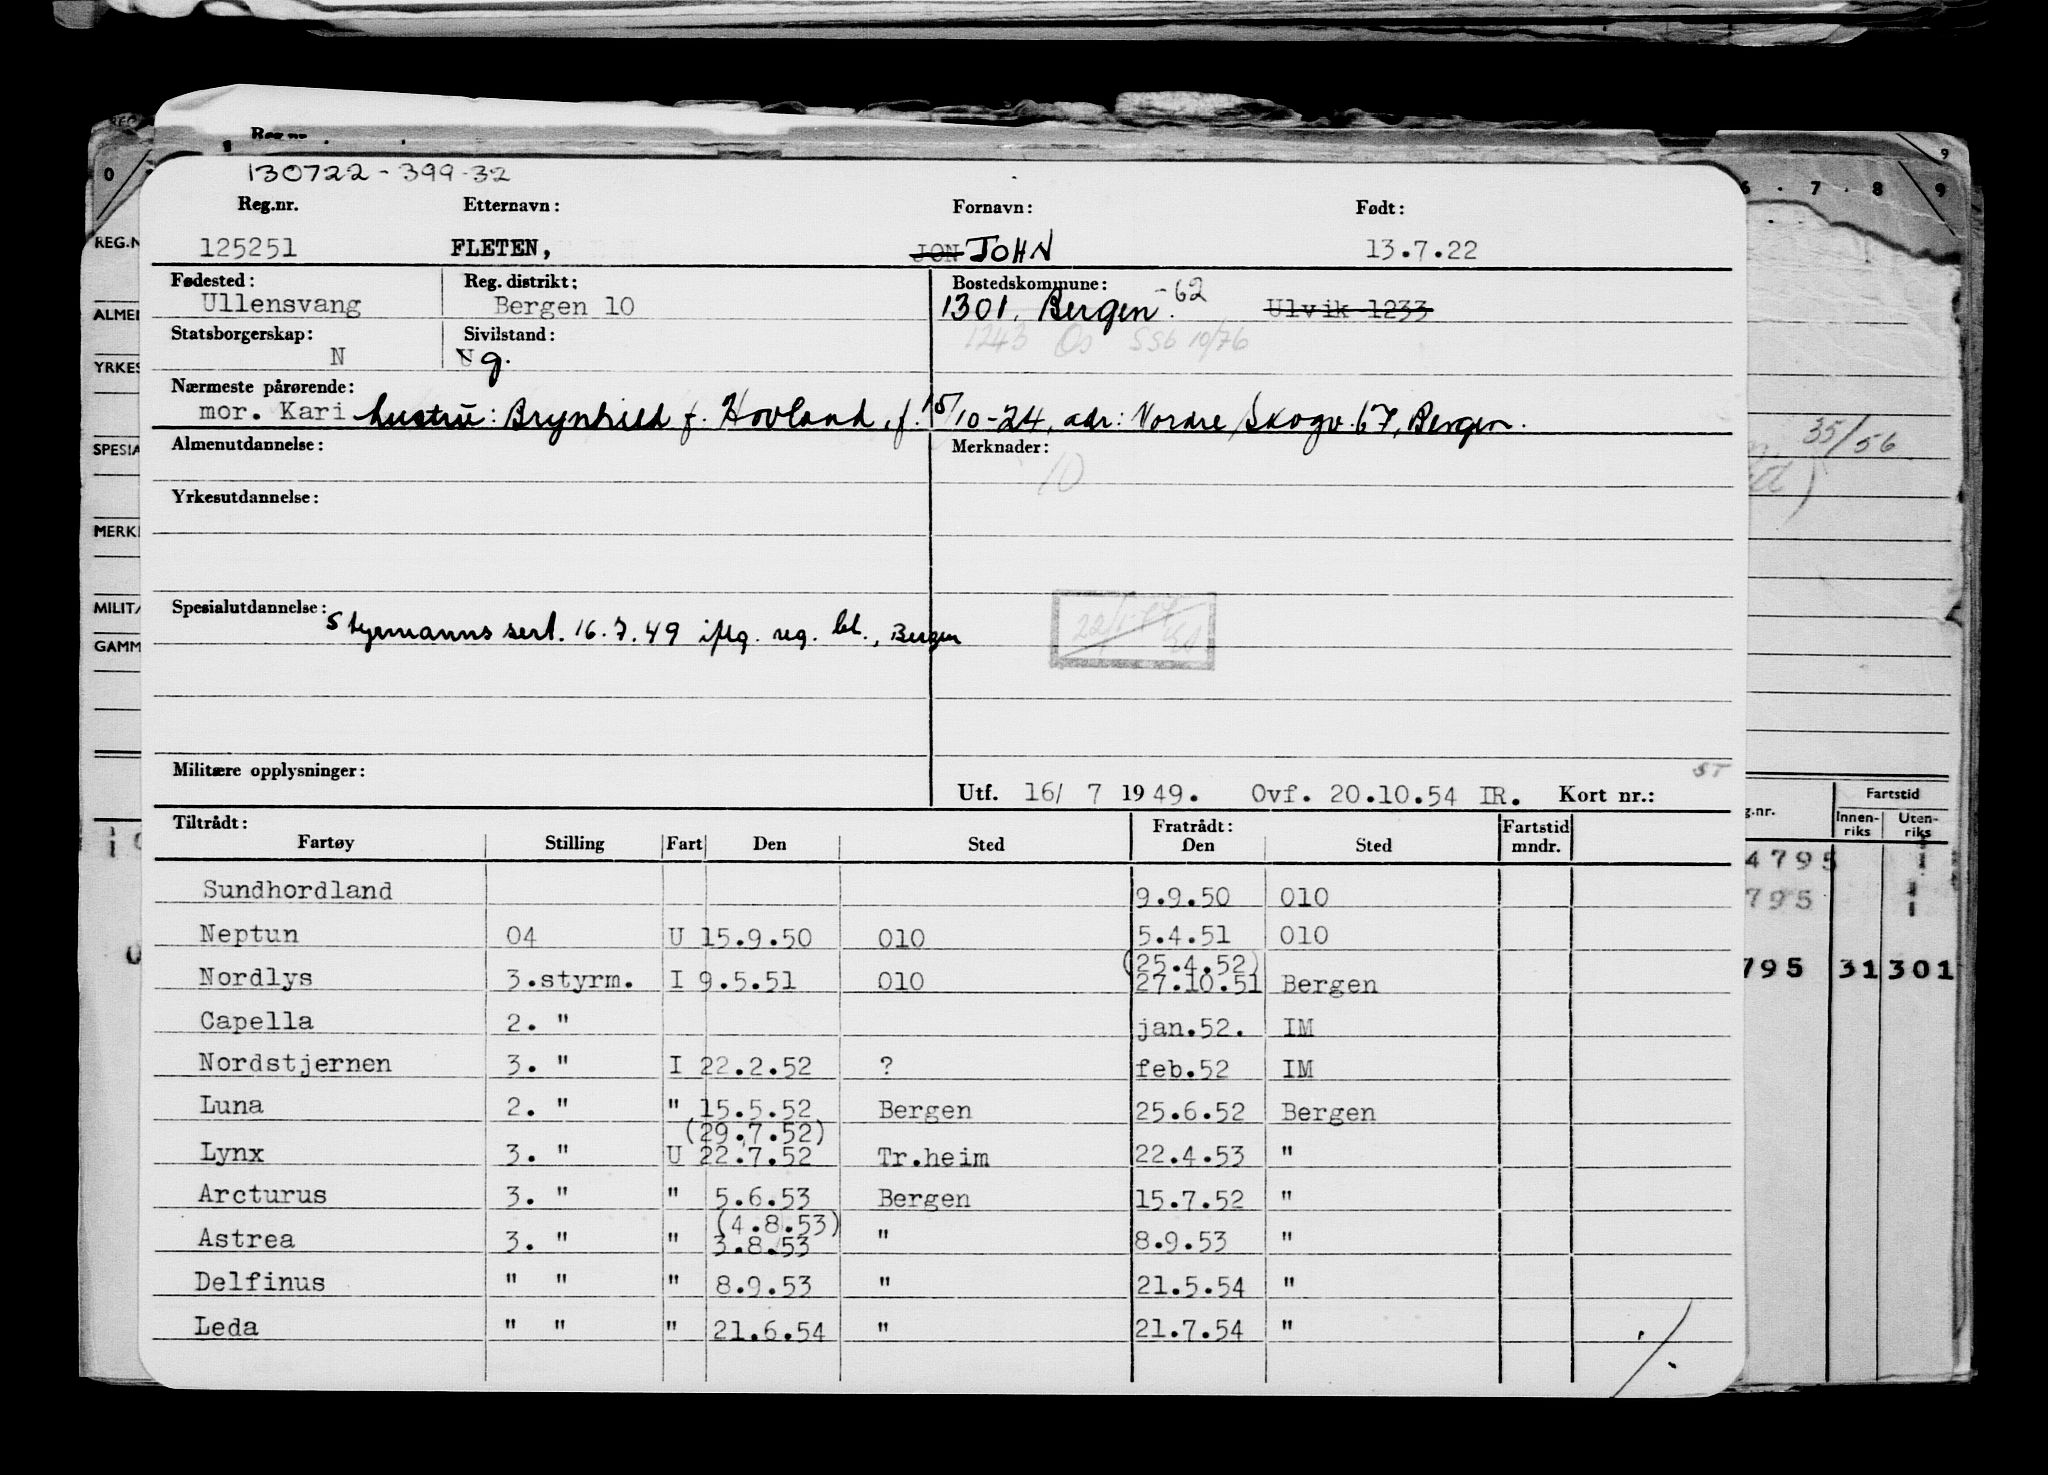 Reg.nr.
130722-399-32
Reg.nr. Etternavn: Fornavn: Født:
125251 FLETEN, JON JOHN 13.7.22
Fødested: Reg. distrikt: Bostedskommune:
Ullensvang Bergen 10 1301, Bergen -62 Ulvik 1233
Statsborgerskap: Sivilstand: 1243 Os SSb 10/76
N U g.
Nærmeste pårørende:
mor. Kari hustru: Brynhild f. Hovland, f. 15/10-24, adr: Nordre Skogv. 67, Bergen.
Almenutdannelse: Merknader:
10
Yrkesutdannelse:
Spesialutdannelse:
Styrmanns sert. 16.7.49 iflg. reg. bl., Bergen
Militære opplysninger: ST
Utf. 16/ 7 1949. Ovf. 20.10.54 IR. Kort nr.:
Tiltrådt: Fratrådt: Fartstid
Fartøy Stilling Fart Den Sted Den Sted mndr.
Sundhordland 9.9.50 010
Neptun 04 U 15.9.50 010 5.4.51 010
(25.4.52)
Nordlys 3.styrm. I 9.5.51 010 27.10.51 Bergen
Capella 2. " jan.52. IM
Nordstjernen 3. " I 22.2.52 ? feb.52 IM
Luna 2. " " 15.5.52 Bergen 25.6.52 Bergen
(29.7.52)
Lynx 3. " U 22.7.52 Tr.heim 22.4.53 "
Arcturus 3. " " 5.6.53 Bergen 15.7.52 "
(4.8.53)
Astrea 3. " " 3.8.53 " 8.9.53 "
Delfinus " " " 8.9.53 " 21.5.54 "
Leda " " " 21.6.54 " 21.7.54 "
0
REG.N
ALMEI
YRKES
SPESIA
MERK
MILITÆ
GAMM
6 . 7 . 8 9
9
35/56
g.nr. Fartstid
Innen-riks Uten-riks
4795
795
795 31 301